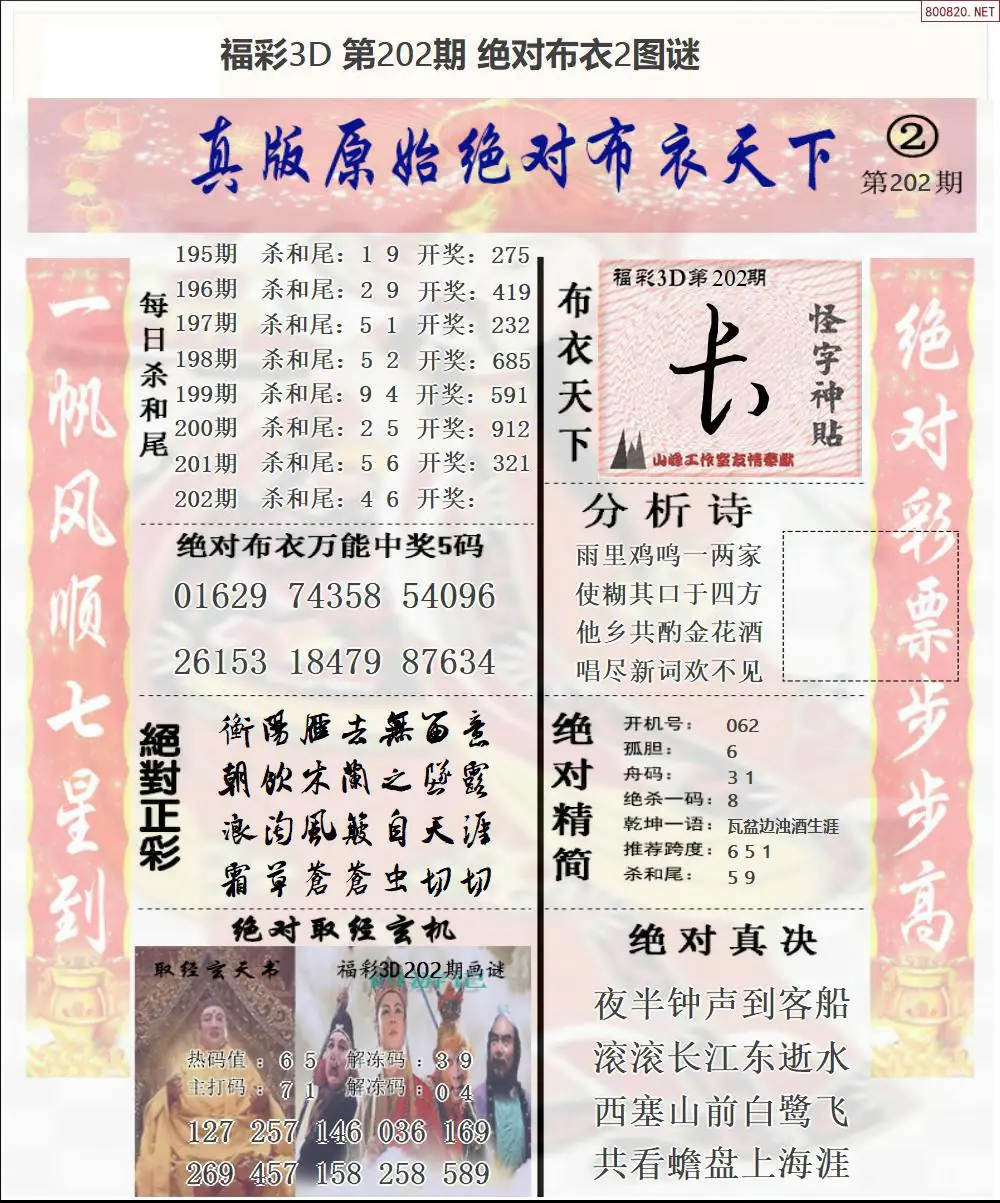 800820.NET
福彩3D 第202期 绝对布衣2图谜
真版原始绝对布衣天下
②
第202期
一帆风顺七星到
每日杀和尾
195期 杀和尾：1 9 开奖：275
196期 杀和尾：2 9 开奖：419
197期 杀和尾：5 1 开奖：232
198期 杀和尾：5 2 开奖：685
199期 杀和尾：9 4 开奖：591
200期 杀和尾：2 5 开奖：912
201期 杀和尾：5 6 开奖：321
202期 杀和尾：4 6 开奖：
绝对布衣万能中奖5码
01629 74358 54096
26153 18479 87634
絕對正彩
衡陽雁去無留意
朝饮木蘭之墜露
浪淘風簸自天涯
霜草蒼蒼虫切切
绝对取经玄机
取经玄天书
福彩3D202期画谜
热码值：6 5 解冻码：3 9
主打码：7 1 解冻码：0 4
127 257 146 036 169
269 457 158 258 589
布衣天下
福彩3D第202期
怪字神貼
山峰工作室友情奉献
分析诗
雨里鸡鸣一两家
使糊其口于四方
他乡共酌金花酒
唱尽新词欢不见
绝对精简
开机号： 062
孤胆： 6
舟码： 3 1
绝杀一码：8
乾坤一语：瓦盆边浊酒生涯
推荐跨度：6 5 1
杀和尾： 5 9
绝对真决
夜半钟声到客船
滚滚长江东逝水
西塞山前白鹭飞
共看蟾盘上海涯
绝对彩票步步高